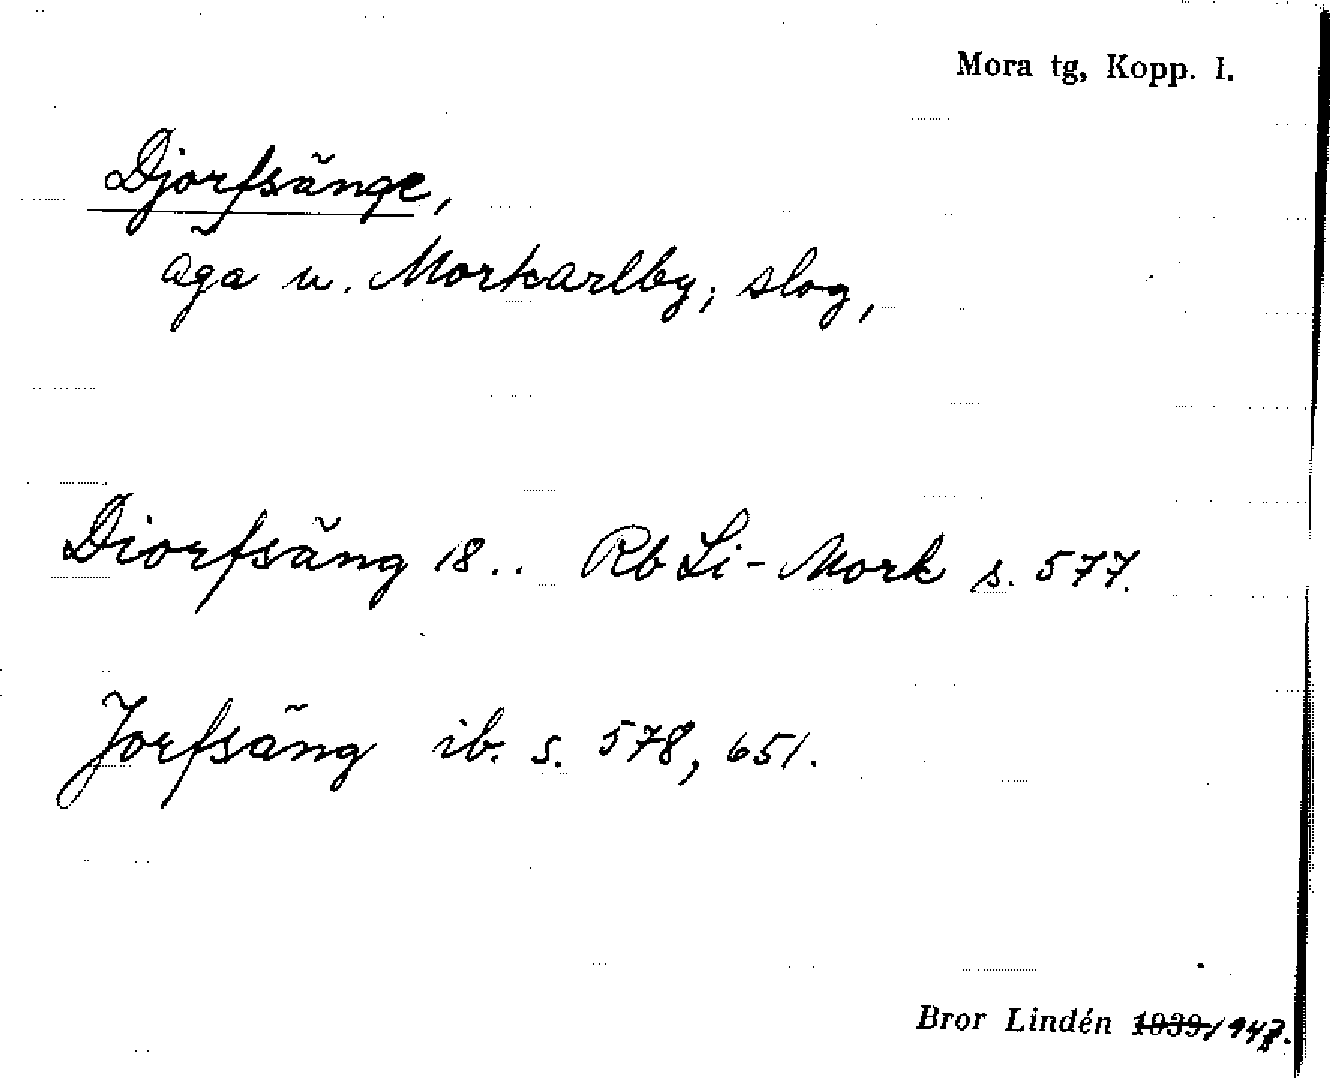 Mora tg, Kopp. l.
Djorfsänge,
äga u. Morkarlby; slog,
Diorfsäng 18.. Rb Li-Mork s. 577.
Jorfsäng ib. s. 578, 651.
Bror Lindén 1939 1947.